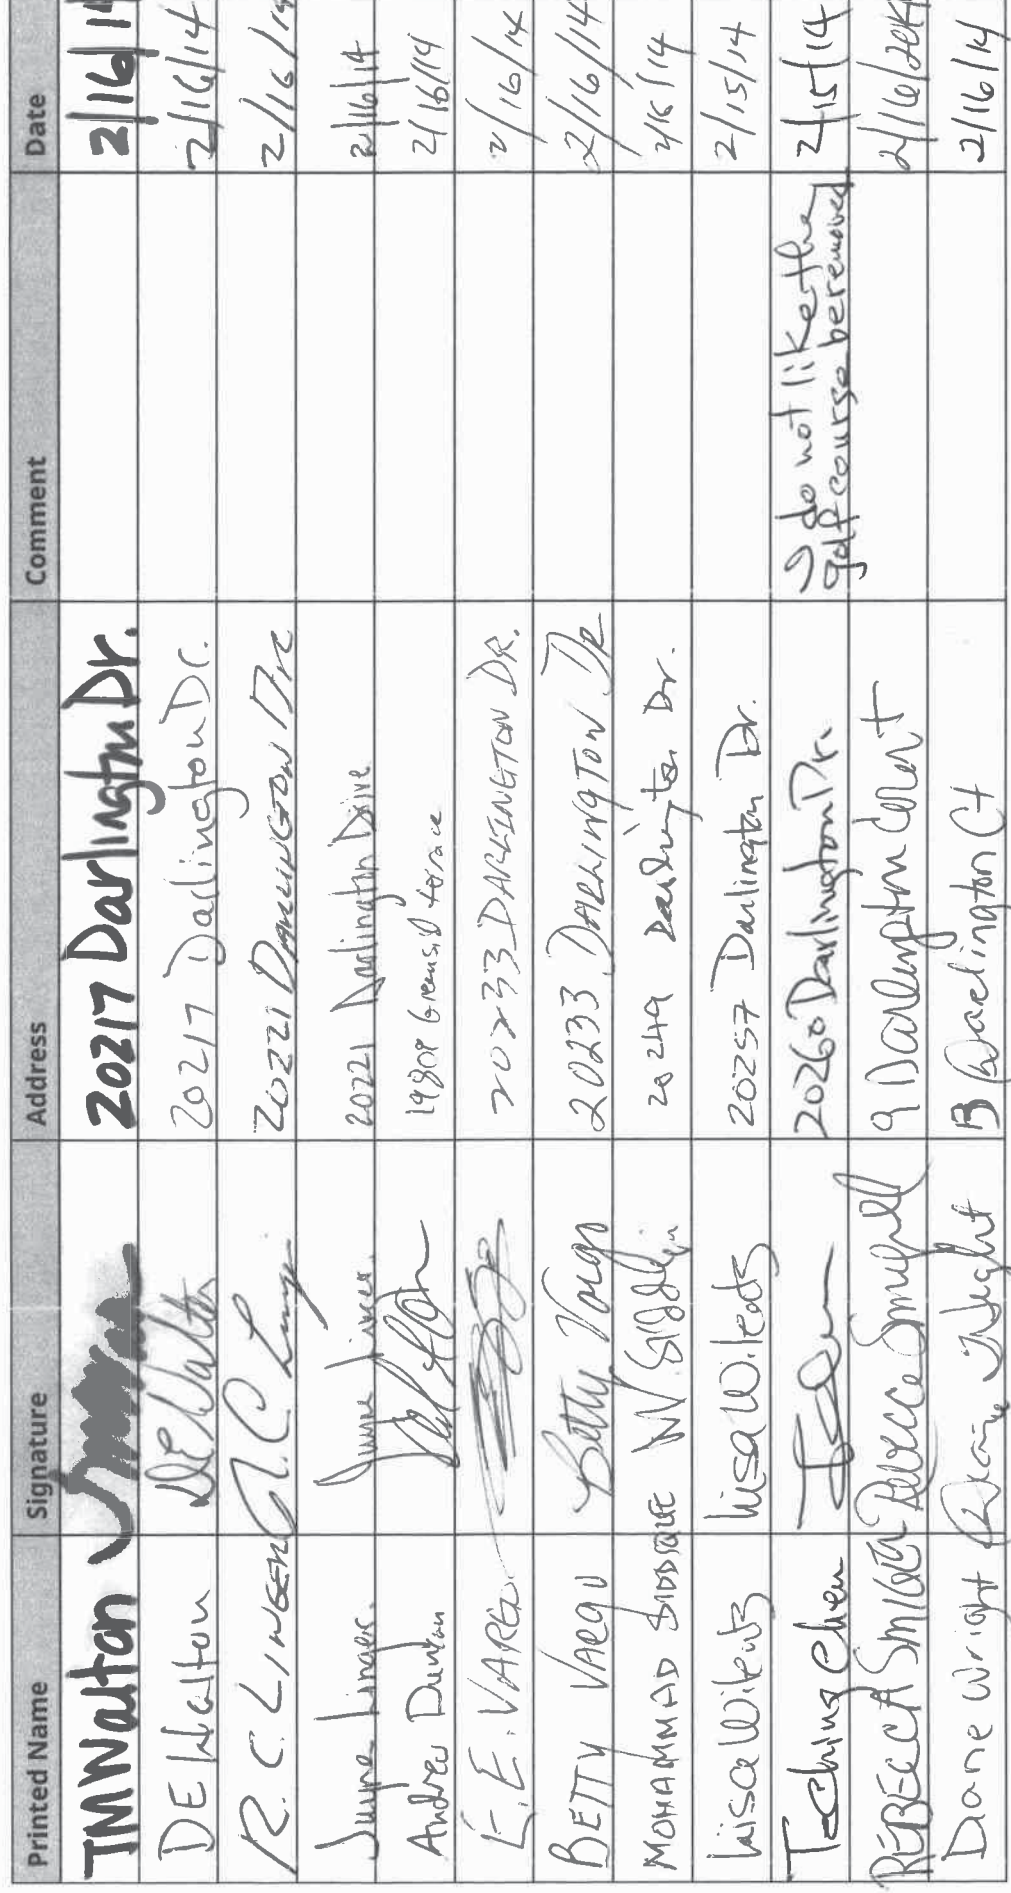 Printed Name Signature Address Comment Date
TMWalton 20217 Darlington Dr. 2/16/14
DE Walton DE Walton 20217 Darlington Dr. 2/16/14
R. C. LINGER R. C. 20221 DARLINGTON DRE 2/16/14
June Linger 20221 Darlington Drive 2/16/14
Andrew Dunton 19808 Greenside terrace 2/16/14
E. E. VARGO 20233 DARLINGTON DR. 2/16/14
BETTY VARGO Betty Vargo 20233 DARLINGTON DR 2/16/14
MOHAMMAD SIDDIQUE 20249 Darlington Dr. 2/15/14
Lisa Wilentz Lisa Wilentz 20257 Darlington Dr. 2/15/14
Teching Chen 20260 Darlington Dr. I do not like the
golf course be removed 2/15/14
REBECCA Rebecca 9 Darlington Court 2/16/2014
Diane Wright Diane Wright Darlington Ct 2/16/14